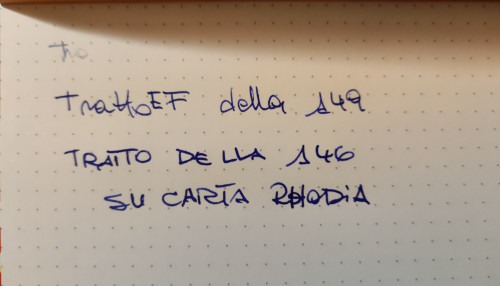 Tra
Tratto EF della 149
TRATTO DELLA 146
SU CARTA RHODIA